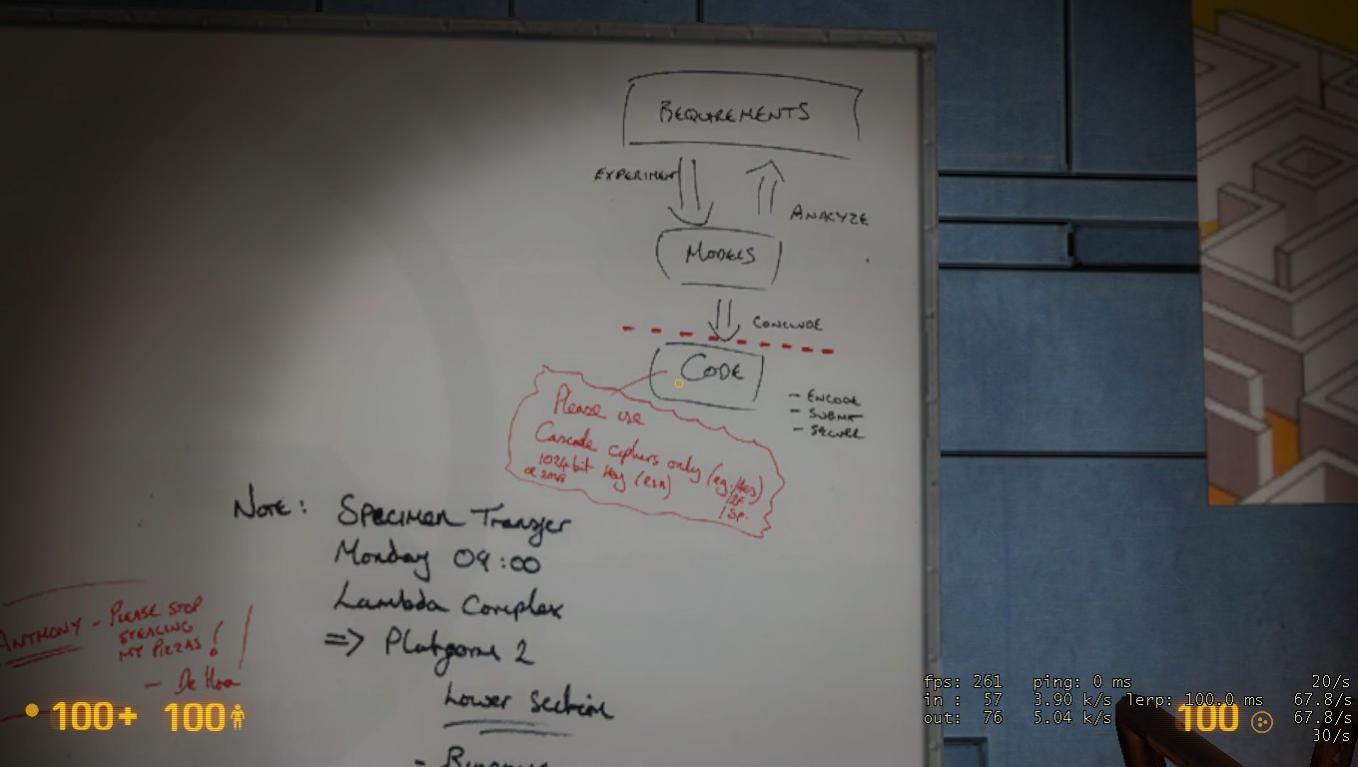 REQUIREMENTS
EXPERIMENT
ANALYZE
MODELS
CONCLUDE
CODE
- ENCODE
- SUBMIT
- SECURE
Please use
Cascade ciphers only (eg. AES)
1024 bit key (RSA)
or 2048
NOTE: Specimen Transfer
Monday 09:00
Lambda Complex
=> Platform 2
Lower Section
ANTHONY - PLEASE STOP
STEALING
MY PIZZAS!
100+ 100
fps: 261 ping: 0 ms 20/s
in : 57 3.90 k/s lerp: 100.0 ms 67.8/s
out: 76 5.04 k/s 67.8/s
30/s
100